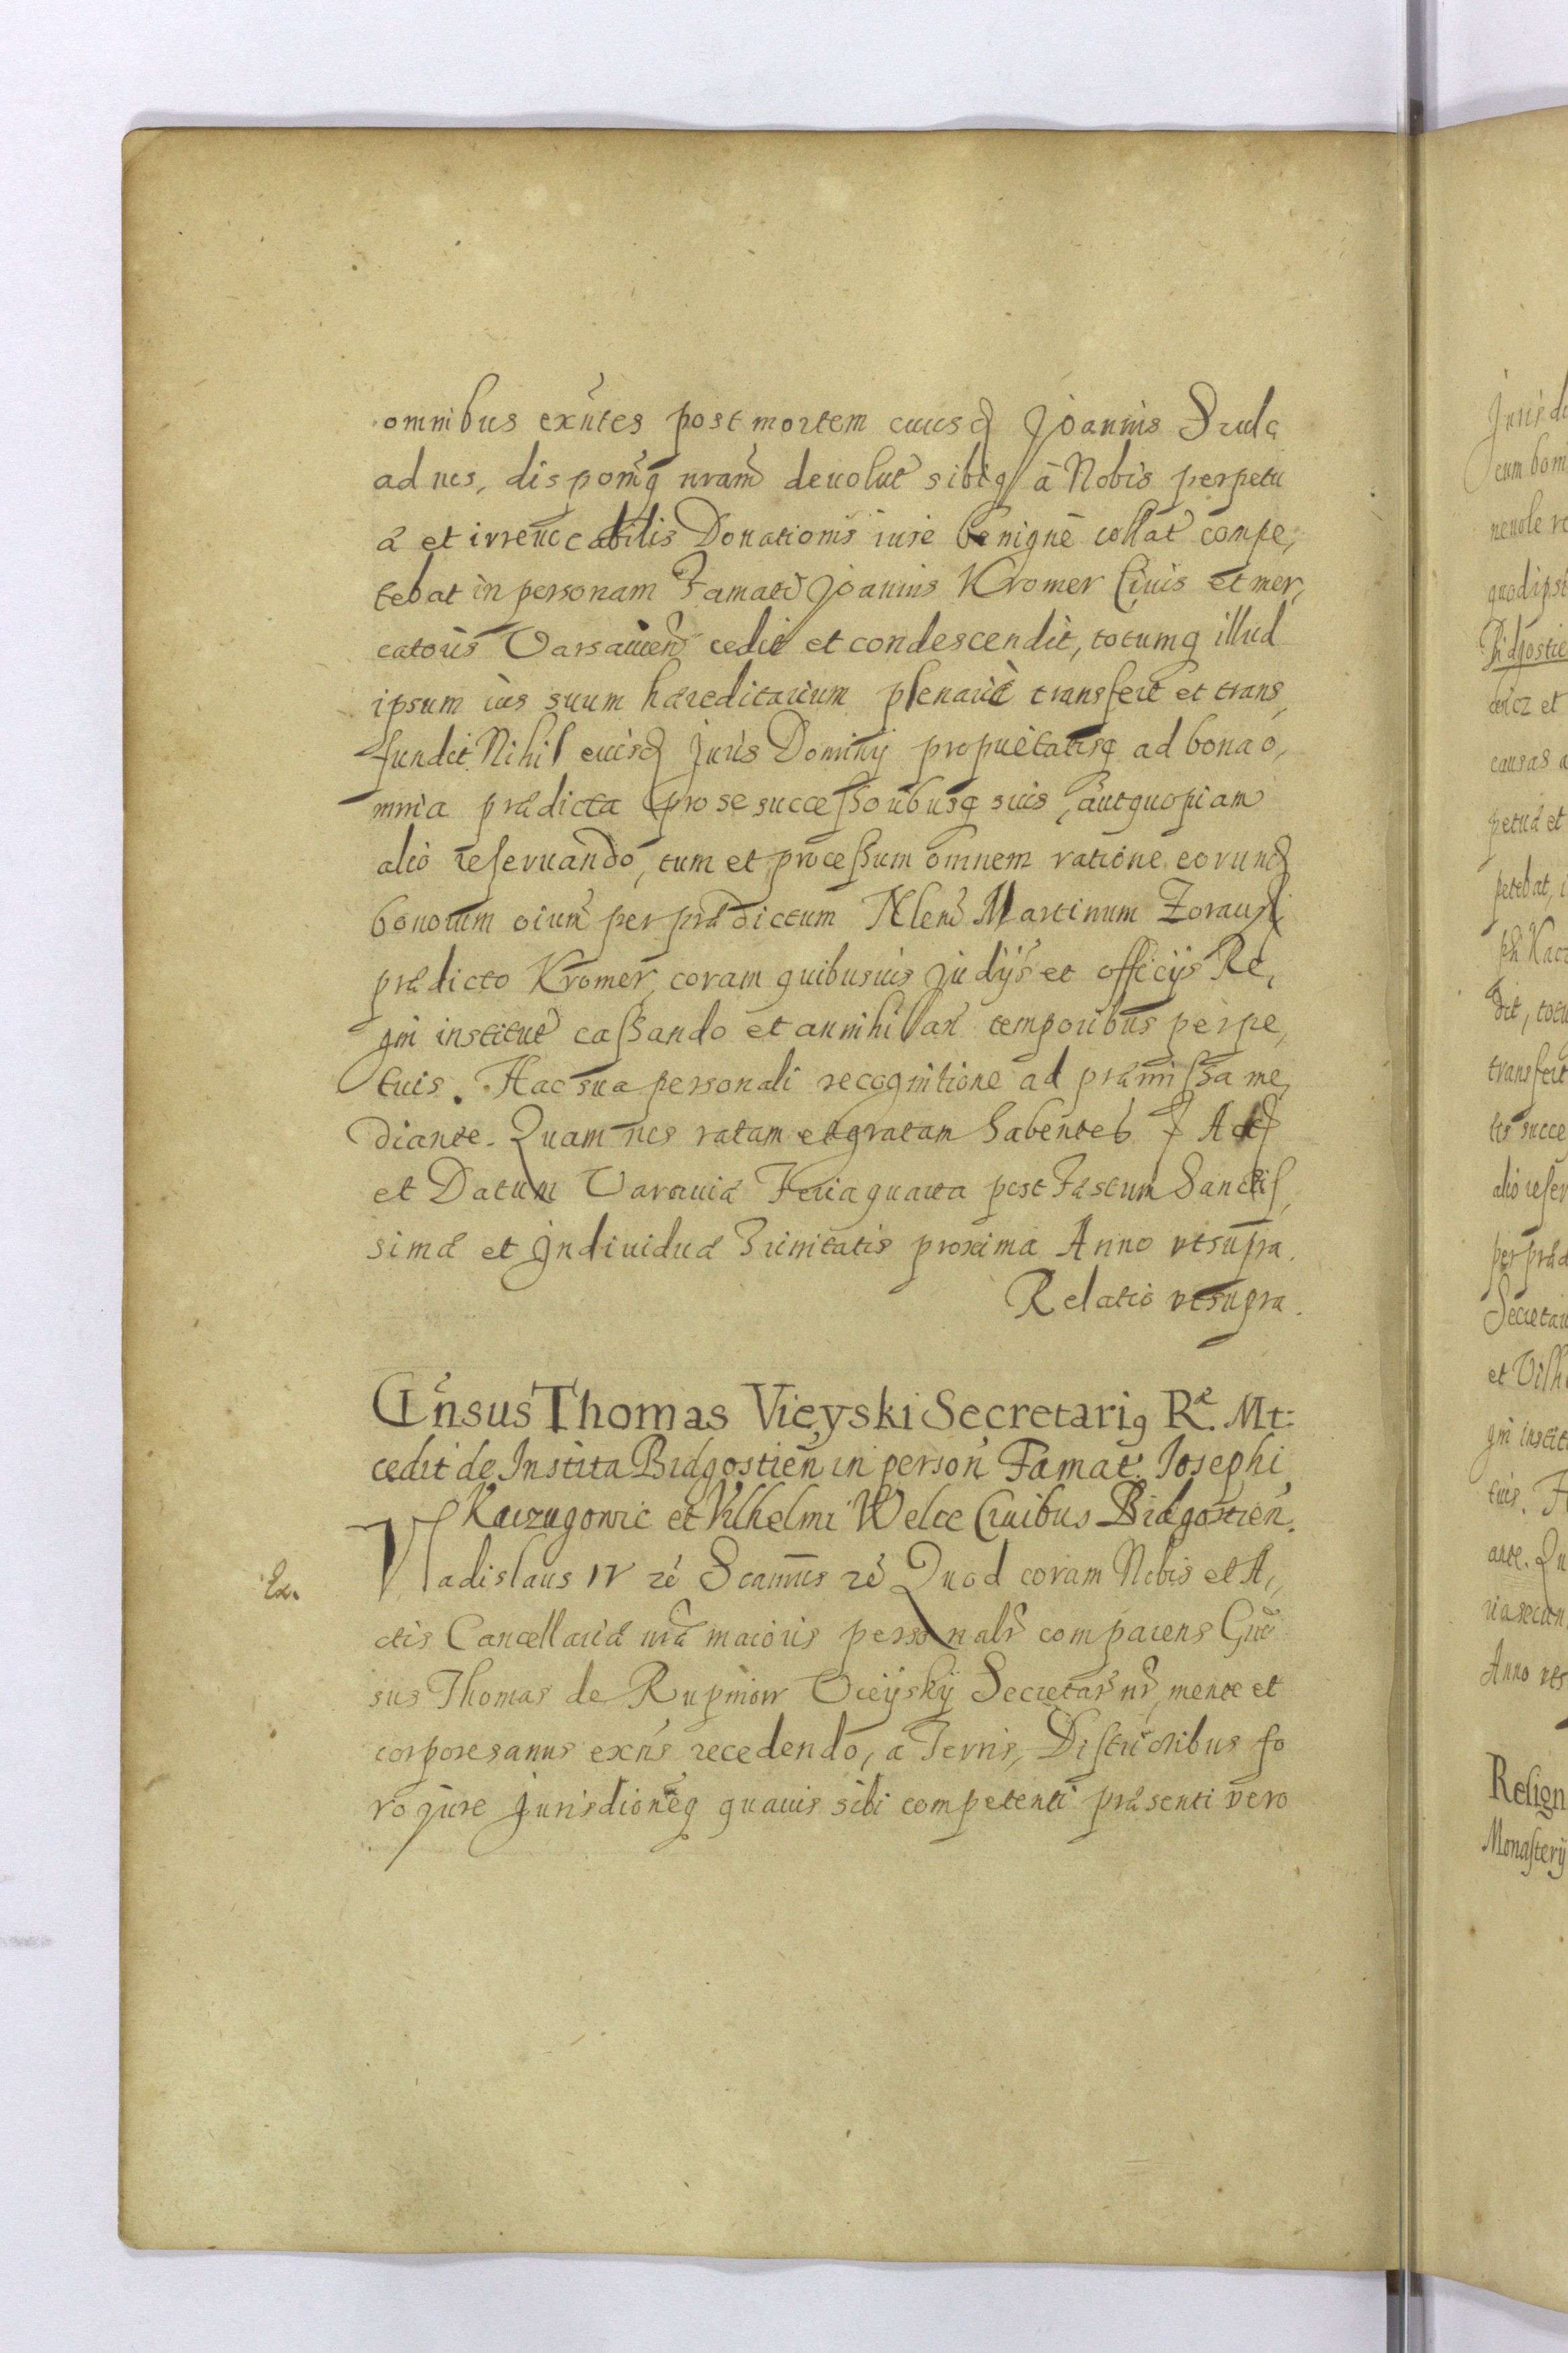 omnibus exñtes post mortem eiusd Joannis Srulc
ad nos, dispoñq nram devolut sibiq à Nobis perpetu
æ et irrevocabilis Donationis iure benigne collat compe,
tebat in personam Famati Joannis Kromer Civis et mer,
catoris Varsavien cedit et condescendit, totumq illud
ipsum ius suum hæreditarium plenarie transfert et trans,
fundit. Nihil eiusd Juris Dominij proprietatisq ad bona o,
mnia prædicta pro se successoribusq suis, aut quopiam
alio reservando, tum et processum omnem ratione eorund
bonorum oium per prædictum Nlem Martinum Zorawski
prædicto Kromer, coram quibusvis Judijs et officijs Re,
gni institut cassando et annihilan temporibus perpe,
tuis. Hac sua personali recognitione ad præmissa me,
diante. Quam nos ratam et gratam habentes Act
et Datum Varsaviæ Feria quarta post Fæstum Sanctis,
simæ et Individuæ Trinitatis proxima Anno ut supra.
Relatio ut supra.
Gñsus Thomas Vieyski Secretariq Rᵉ. Mt:
cedit de Instita Bidgostien in person Famat. Josephi
Kaczugowic et Vilhelmi Welce Civibus Bidgostien.
Ex. Vladislaus IV rc Scamus rc Quod coram Nobis et A,,
ctis Cancellariæ nræ maioris personalr comparens Gñe
sus Thomas de Rupniow Vieijskij Secretar nr, mente et
corpore sanus exñs recedendo, a Terris, Districtibus fo
ro jure Jurisdioneq quavis sibi competenti præsenti vero
Juris do
cum bom
nevole re
quod ipsi
Bidgostie
wicz et
causas a
petuæ et
petebat, i
ph Kac
dit, totu
transfert
tis succe
alio reser
per præd
Secretari
et Vilh
gni instit
tuis. H
ante. Qu
ria secun
Anno uts
Resign
Monasterij